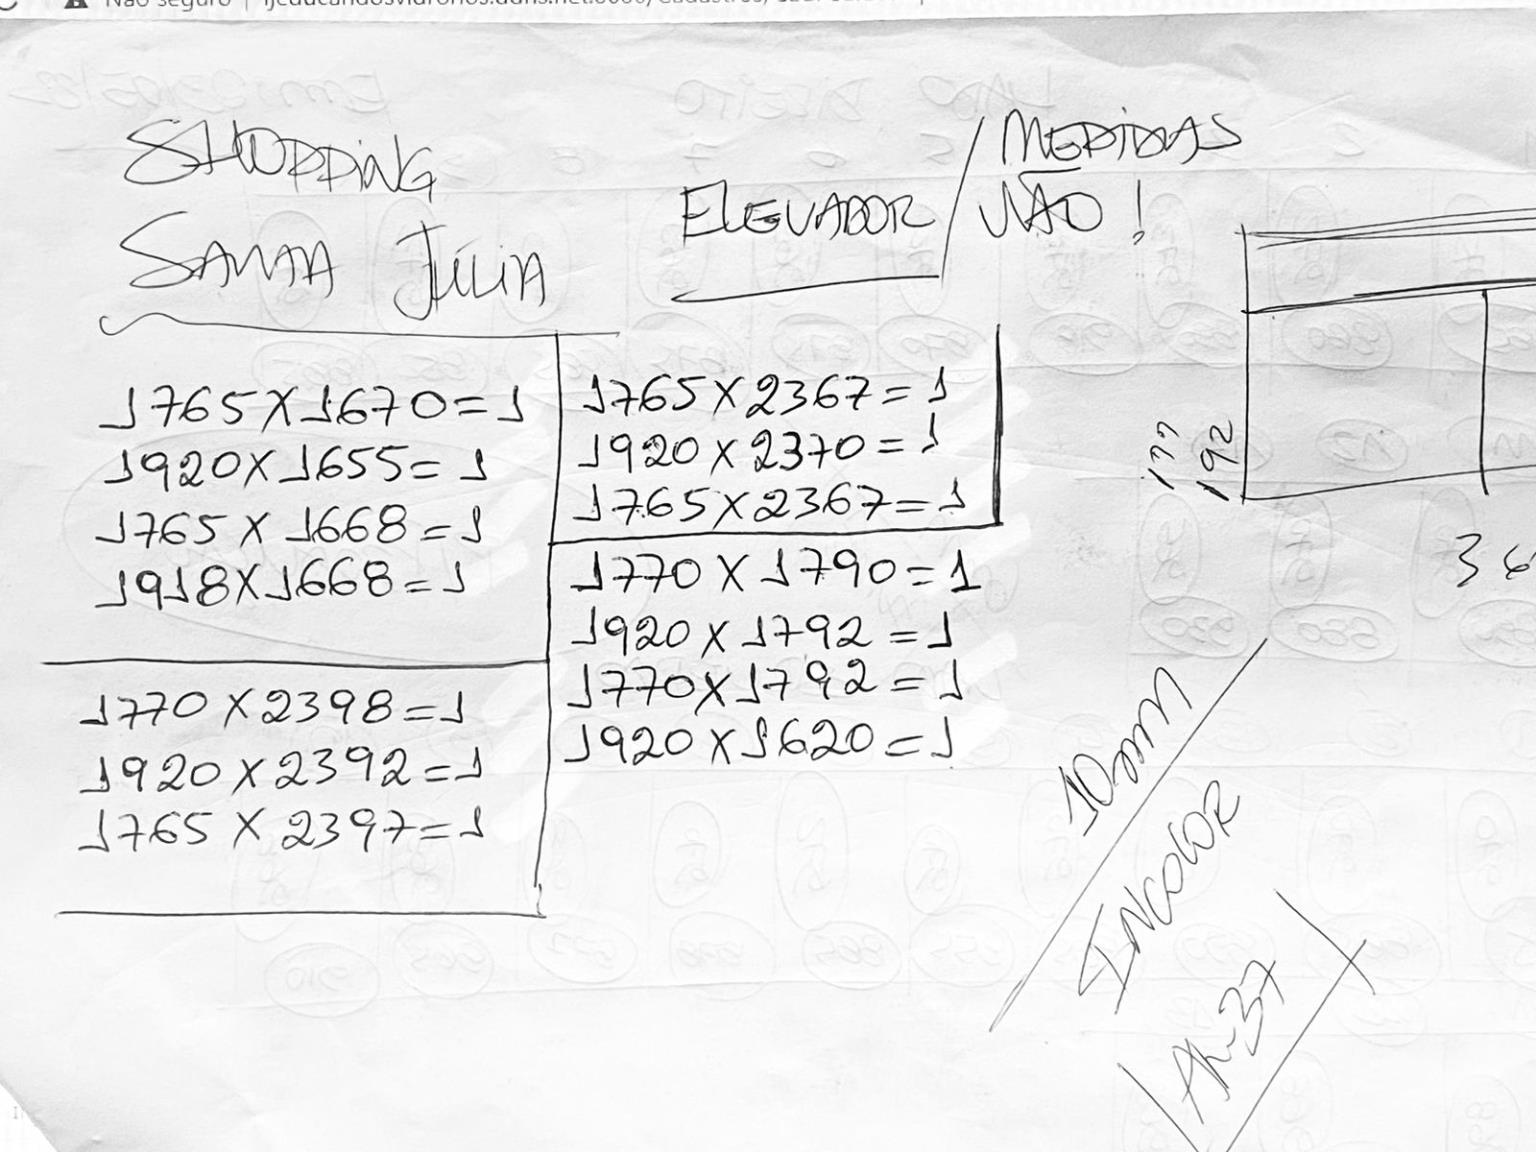 SHOPPING
SANTA JÚLIA
ELEVADOR / MEDIDAS
VÃO!
1765 X 1670 = 1
1920 X 1655 = 1
1765 X 1668 = 1
1918 X 1668 = 1
1770 X 2398 = 1
1920 X 2392 = 1
1765 X 2397 = 1
1765 X 2367 = 1
1920 X 2370 = 1
1765 X 2367 = 1
1770 X 1790 = 1
1920 X 1792 = 1
1770 X 1792 = 1
1920 X 1620 = 1
177
192
36
10mm
INCOLOR